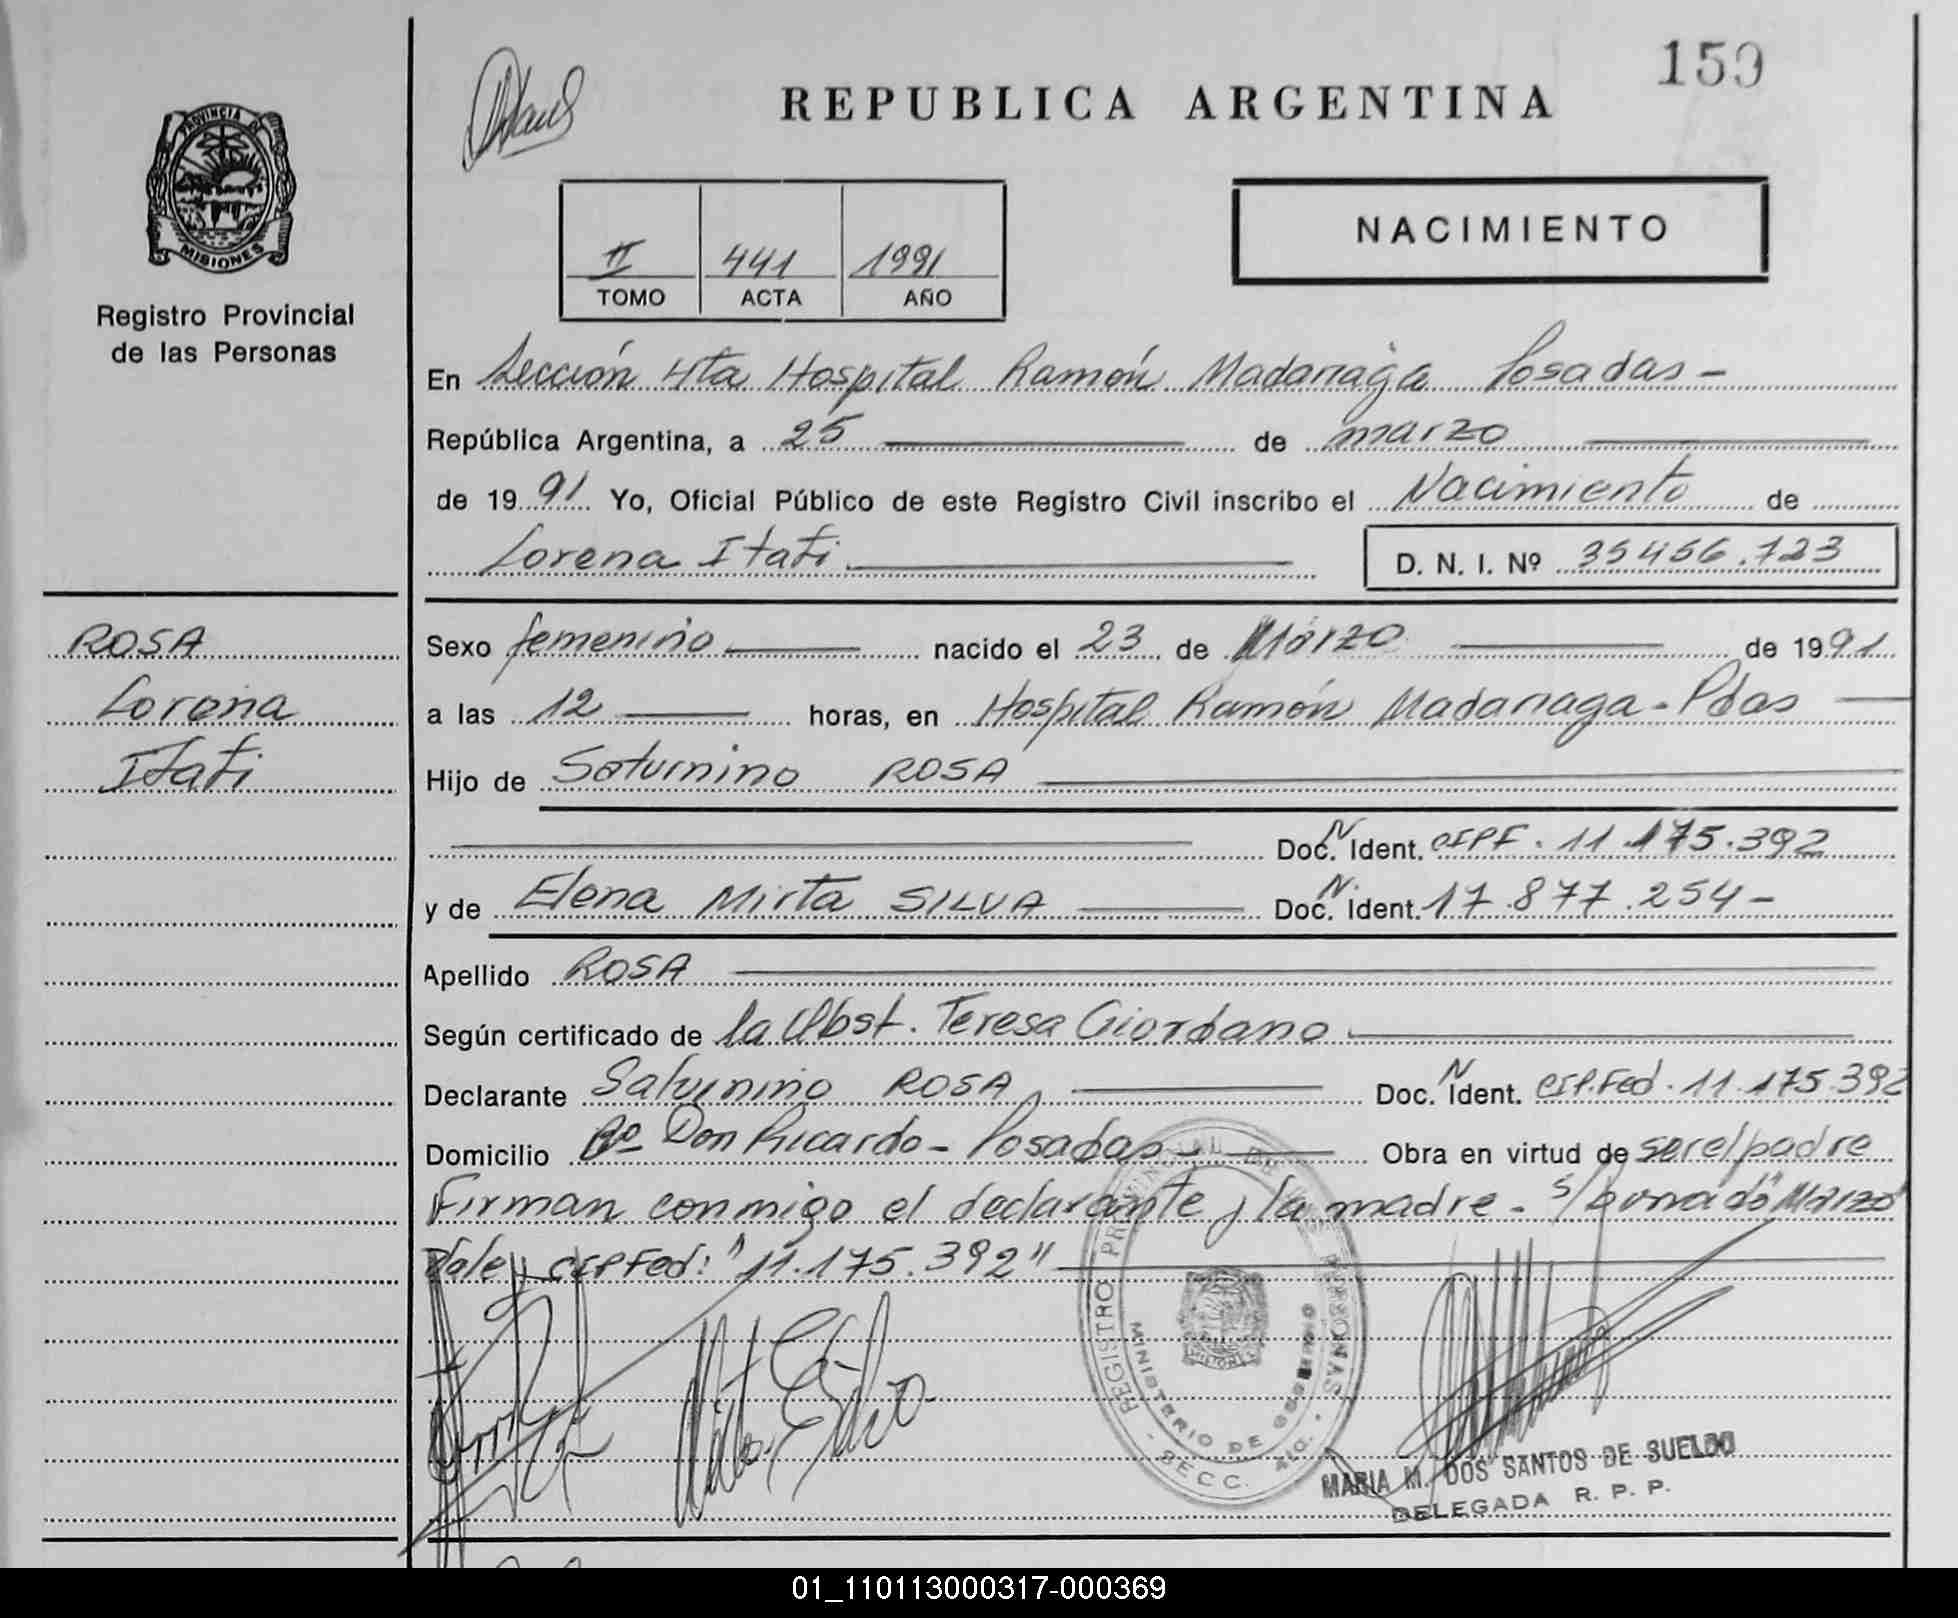 159
REPUBLICA ARGENTINA
PROVINCIA DE
MISIONES
Registro Provincial
de las Personas
NACIMIENTO
II 441 1991
TOMO ACTA AÑO
En Sección 4ta Hospital Ramón Madariaga Posadas -
República Argentina, a 25 de marzo
de 1991 Yo, Oficial Público de este Registro Civil inscribo el Nacimiento de
Lorena Itatí D. N. I. Nº 35456.723
ROSA
Lorena
Itatí
Sexo femenino nacido el 23 de Marzo de 1991
a las 12 horas, en Hospital Ramón Madariaga - Pdas
Hijo de Saturnino ROSA
Doc. N Ident. CIPF. 11.175.392
y de Elena Mirta SILVA Doc. N. Ident. 17.877.254-
Apellido ROSA
Según certificado de la Obst. Teresa Giordano
Declarante Saturnino ROSA, Doc. N Ident. CIP.Fed. 11.175.392
Domicilio Bº Don Ricardo - Posadas - Obra en virtud de ser el padre
Firman conmigo el declarante y la madre. S/borrado "Marzo"
Vale, CIPFed: "11.175.392"
REGISTRO PROVINCIAL DE LAS PERSONAS
MINISTERIO DE GOBIERNO
SECC. 4ta.
MARIA M. DOS SANTOS DE SUELDO
DELEGADA R. P. P.
01_110113000317-000369